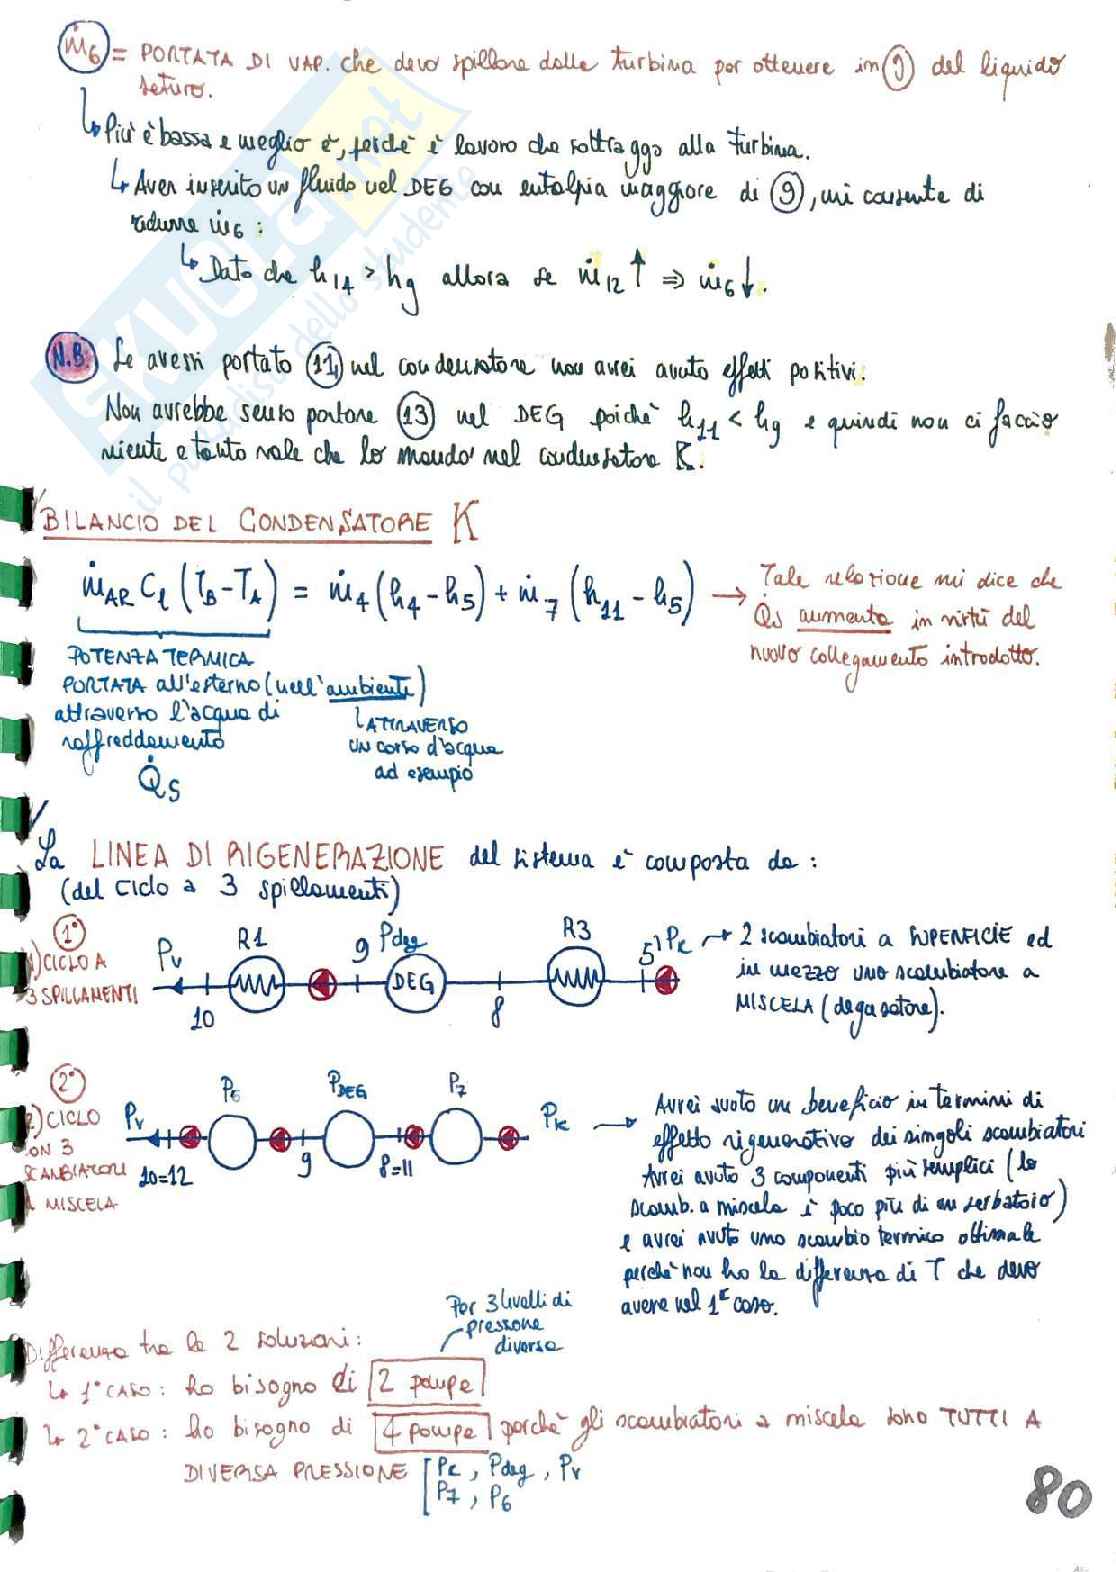 ṁ6 = PORTATA DI VAP. che devo spillare dalla turbina per ottenere in 9 del liquido
saturo.
↳ Più è bassa e meglio è, perché è lavoro che sottraggo alla turbina.
↳ Aver inserito un fluido nel DEG con entalpia maggiore di 9, mi consente di
ridurre ṁ6 :
↳ Dato che h14 > h9 allora se ṁ12 ↑ ⇒ ṁ6 ↓.
N.B. Se avessi portato 11 nel condensatore non avrei avuto effetti positivi.
Non avrebbe senso portare 13 nel DEG poichè h11 < h9 e quindi non ci faccio
niente e tanto vale che lo mando nel condensatore K.
BILANCIO DEL CONDENSATORE K
ṁAR Cl (TB - TA) = ṁ4 (h4 - h5) + ṁ7 (h11 - h5) → Tale relazione mi dice che
Q̇s aumenta in virtù del
nuovo collegamento introdotto.
POTENZA TERMICA
PORTATA all'esterno (nell'ambiente)
attraverso l'acqua di
raffreddamento
Q̇s
↳ ATTRAVERSO
UN corso d'acqua
ad esempio
La LINEA DI RIGENERAZIONE del sistema è composta da :
(del ciclo a 3 spillamenti)
1°
1) CICLO A
3 SPILLAMENTI
Pv
R1
9
Pdeg
DEG
R3
5'
Pk
10
8
→ 2 scambiatori a SUPERFICIE ed
in mezzo uno scambiatore a
MISCELA (degasatore).
2°
2) CICLO
CON 3
SCAMBIATORI
A MISCELA
Pv
P6
PDEG
P7
Pk
10=12
9
8=11
→ Avrei avuto un beneficio in termini di
effetto rigenerativo dei singoli scambiatori
Avrei avuto 3 componenti più semplici (lo
scamb. a miscela è poco più di un serbatoio)
e avrei avuto uno scambio termico ottimale
perchè non ho la differenza di T che devo
avere nel 1° caso.
Per 3 livelli di
pressione
diversa
Differenza tra le 2 soluzioni:
↳ 1° CASO : ho bisogno di 2 pompe
↳ 2° CASO : ho bisogno di 4 pompe perchè gli scambiatori a miscela sono TUTTI A
DIVERSA PRESSIONE [ Pk , Pdeg , Pv
P7 , P6
80
SKUOLA.net
il paradiso dello studente